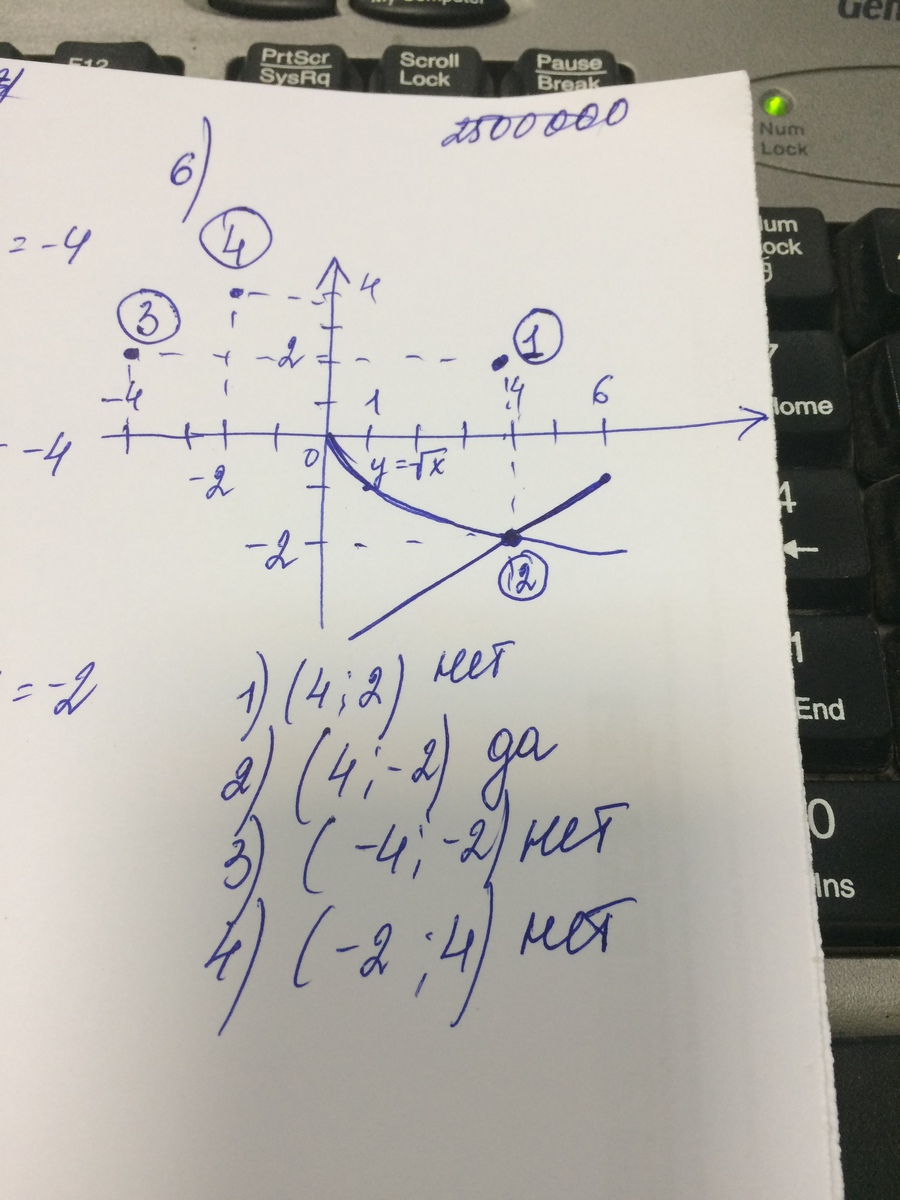 My Computer
Gen
F12
PrtScr
SysRq
Scroll
Lock
Pause
Break
Num
Lock
2500000
6)
= -4
4
4
3
-2
1
-4
1
4
6
-4
0
y=-√x
-2
-2
2
= -2
1) (4; 2) нет
2) (4; -2) да
3) (-4; -2) нет
4) (-2; 4) нет
um
ock
7
Home
4
←
1
End
0
Ins